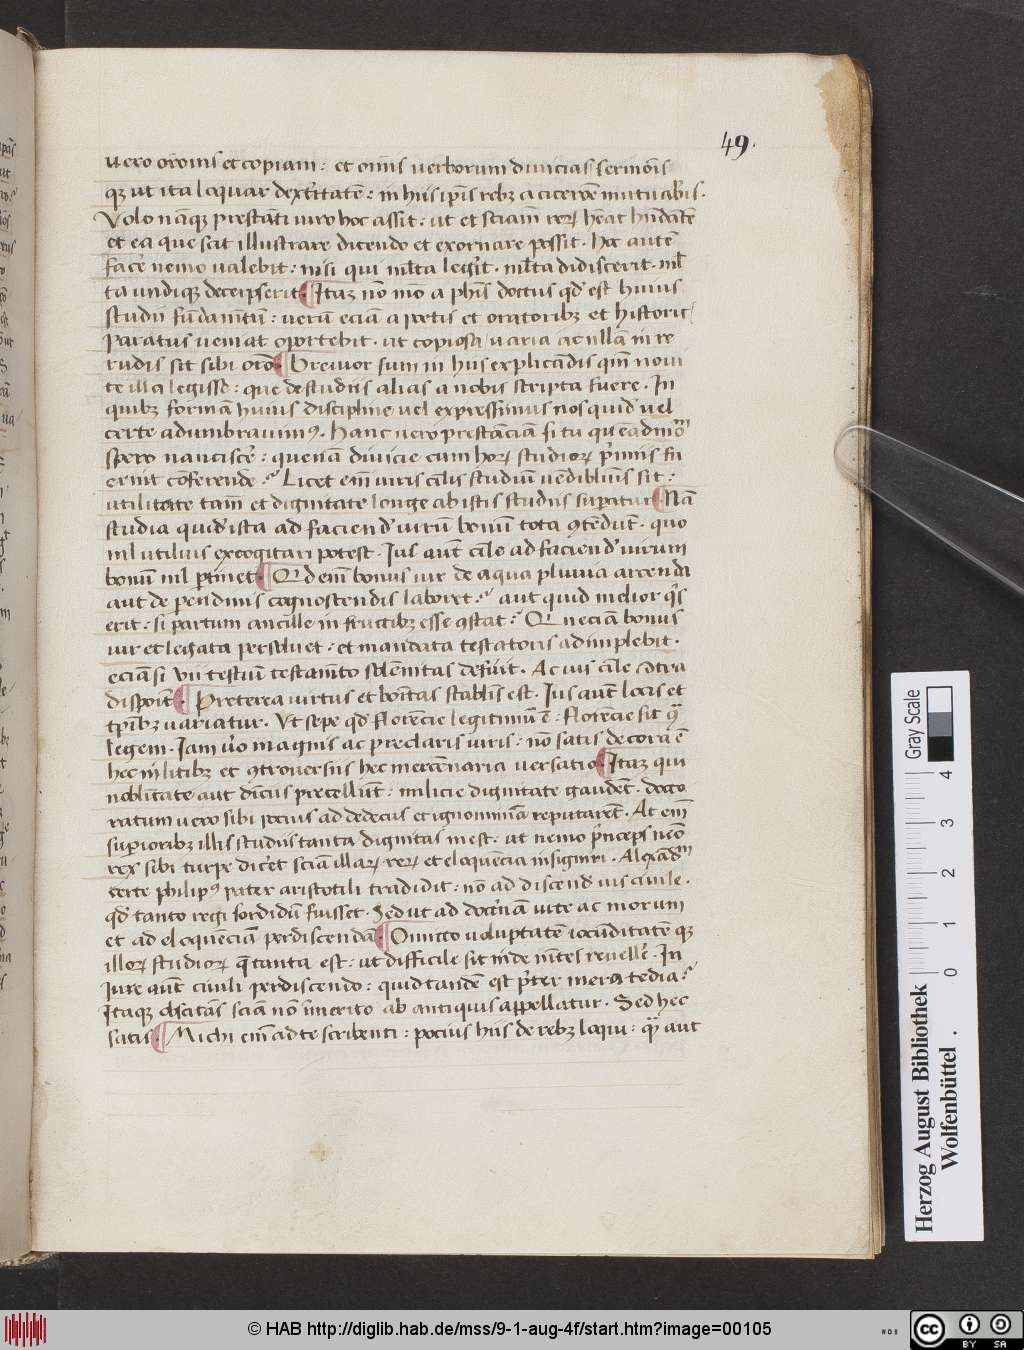 49.
uero orōnis et copiam : et om̄is uerborum diuicias sermōis
qꝫ ut ita loquar dext̓itatē : in hiis ip̄is rebꝫ a cicerōe mutuab̓is .
Volo nāqꝫ prestāti uiro hoc assit : ut et sciam̄ reꝝ heat hūdātē
et ea que scit illustrare dicendo et exornare possit . hoc autē
fac̓e nemo ualebit : nisi qui ml̄ta leg̓it . ml̄ta didiscerit . ml̄
ta undiqꝫ decerpserit ¶ Itaqꝫ nō mō a ph̄is doctus qd̓ est huius
studii fūdamētū : uerū eciā a poetis et oratoribꝫ et historic̓
paratus ueniat oportebit . ut copiosa / uaria ac nullā in re
rudis sit sibi orō ¶ Breuior sum in hiis explicādis qm̄ noui
te illa legisse : que de studiis alias a nobis scripta fuere . In
quibꝫ formā huius discipline uel expressimus nos quid̓ uel
certe adumbrauimꝰ . Hanc uero prestāciā si tu quēadmoᵐ
spero nancisce̓ : quenā diuicie cum hoꝝ studioꝝ p̓miis fu
erint cōferende ? Licet em̄ iuris ciuilis studiū uēdibliuis sit :
utilitate tam̄ et dignitate longe ab istis studiis sup̱atur ¶ Nā
studia quid̓ ista ad faciend̓ uirū bonū tota ꝯtēdūt . quo
nil utilius excogitari potest . Ius aut̄ ciuile ad faciend̓ uirum
bonū nil ꝑtinet ¶ Qd̓ em̄ bonus uir de aqua pluuia arcenda
aut de pendiniis cognoscendis laboret ? aut quid melior qͥs
erit : si partum ancille in fructibꝫ esse ꝯstat ? Qn eciam bonus
uir et legata persoluet : et mandata testatoris adimplebit .
eciam si vii testiū testamēto solēnitas defuit . Ac ius ciuile cōtra
disponit ¶ Preterea uirtus et bonitas stabilis est . Ius aut̄ locis et
tp̄ibꝫ uariatur . Vt sepe qd̓ Florēcie legitimū ē : Florēcie sit ꝯͣ
legem . Iam u̓o magnis ac preclaris uiris : nō satis decora ē
hec in litibꝫ et ꝯtrouersiis hec mercēnaria uersatio ¶ Itaqꝫ qui
nobilitate aut diuiciis precellūt : milicie dignitate gaudēt . docto
ratum uero sibi pocius ad dedecus et ignominiā reputarēt . At em̄
sup̱ioribꝫ illis studiis tanta dignitas inest . ut nemo p̓nceps neō
rex sibi turpe dic̓et sciā illaꝝ reꝝ et eloquēcia insigniri . Alexādᵐ
certe philipꝰ pater aristotili tradidit : nō ad discend̓ ius ciuile .
qd̓ tanto regi sordidū fuisset . Sed ut ad doct̓nam uite ac morum
et ad eloquēciā perdiscendā ¶ Omitto uoluptatē iocūditatē qꝫ
illoꝝ studioꝝ q̄ tanta est : ut difficile sit inde mētes reuelle̓ . In
Iure aut̄ ciuili perdiscendo : quid tandē est p̓ter mera tedia ?
Itaqꝫ obscitās sciā nō īmerito ab antiquis appellatur . Sed hec
satis ¶ Michi em̄ ad te scribenti : pocius hiis de rebꝫ loqui : qͣ aut
Herzog August Bibliothek
Wolfenbüttel
Gray Scale
0 1 2 3 4
© HAB http://diglib.hab.de/mss/9-1-aug-4f/start.htm?image=00105
WDB
cc BY SA